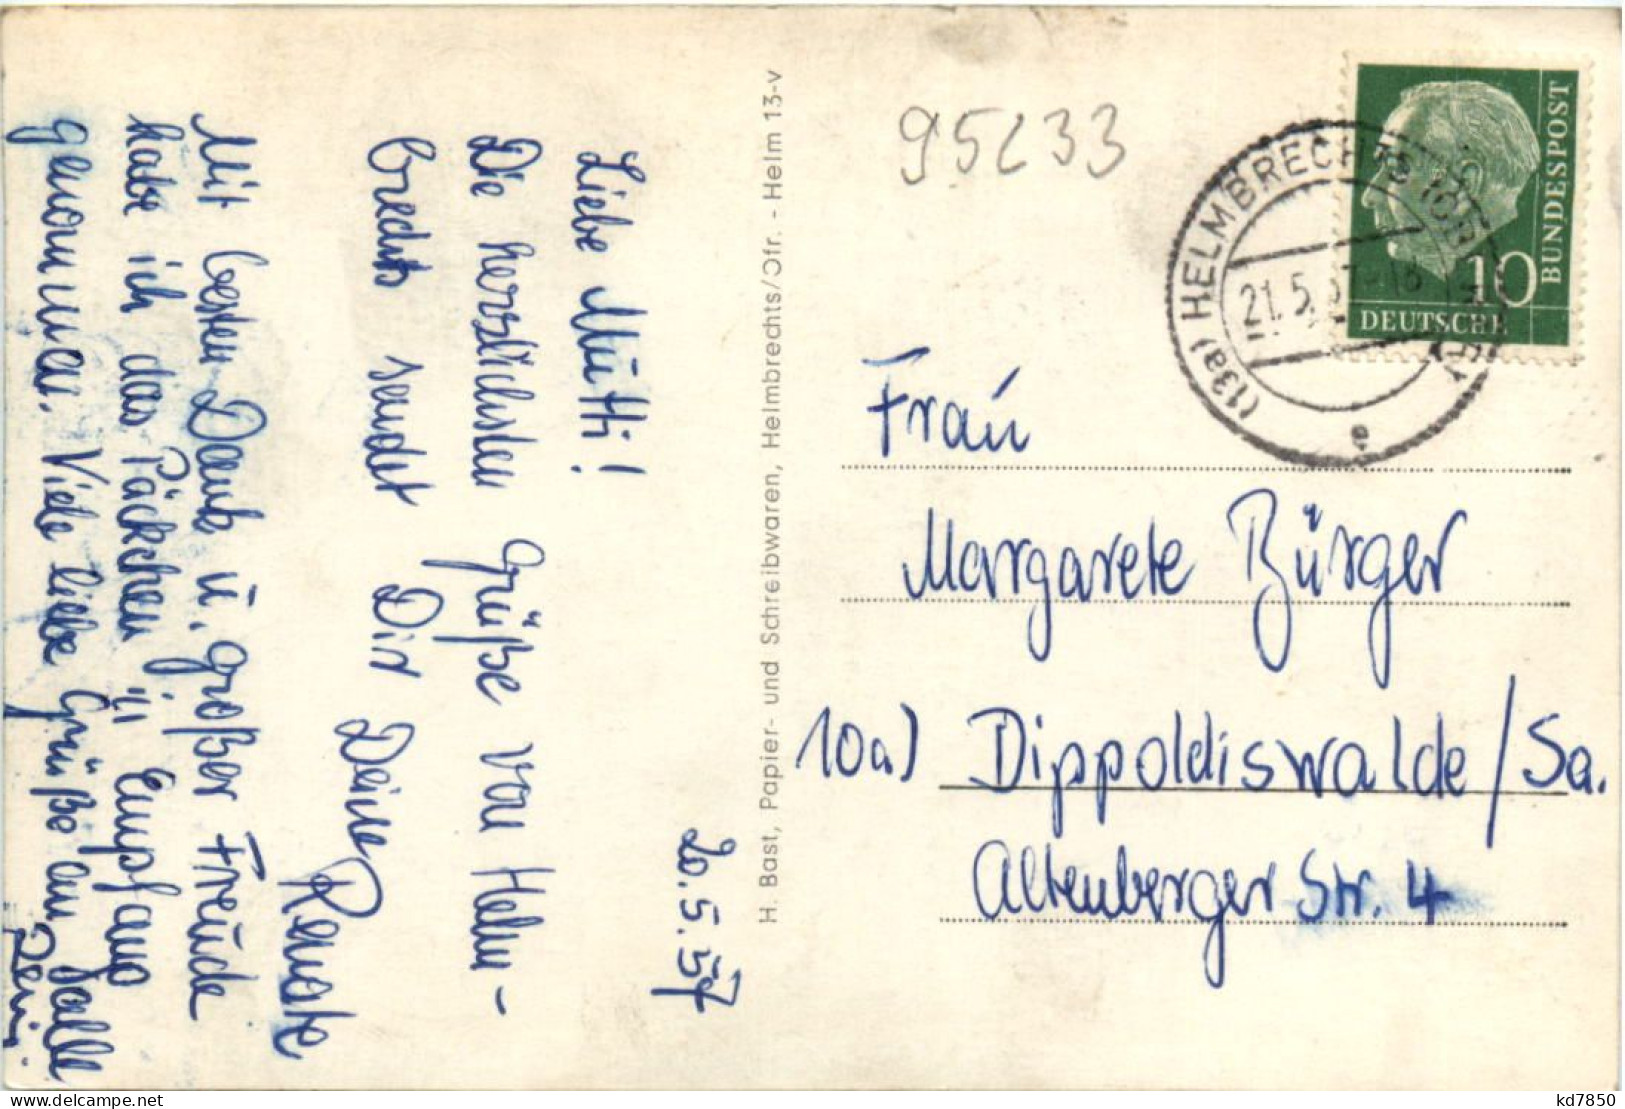 20.5.57
Liebe Mutti!
Die herzlichsten Grüße von Helm-
brechts sendet Dir Deine
Renate
Mit besten Dank u. großer Freude
habe ich das Päckchen in Empfang
genommen. Viele liebe Grüße an
H. Bast, Papier- und Schreibwaren, Helmbrechts/Ofr. - Helm 13-v
95233
(13a) HELMBRECHTS
21.5.
10
DEUTSCHE
BUNDESPOST
Frau
Margarete Bürger
10a) Dippoldiswalde/Sa.
Altenberger Str. 4
kd7850